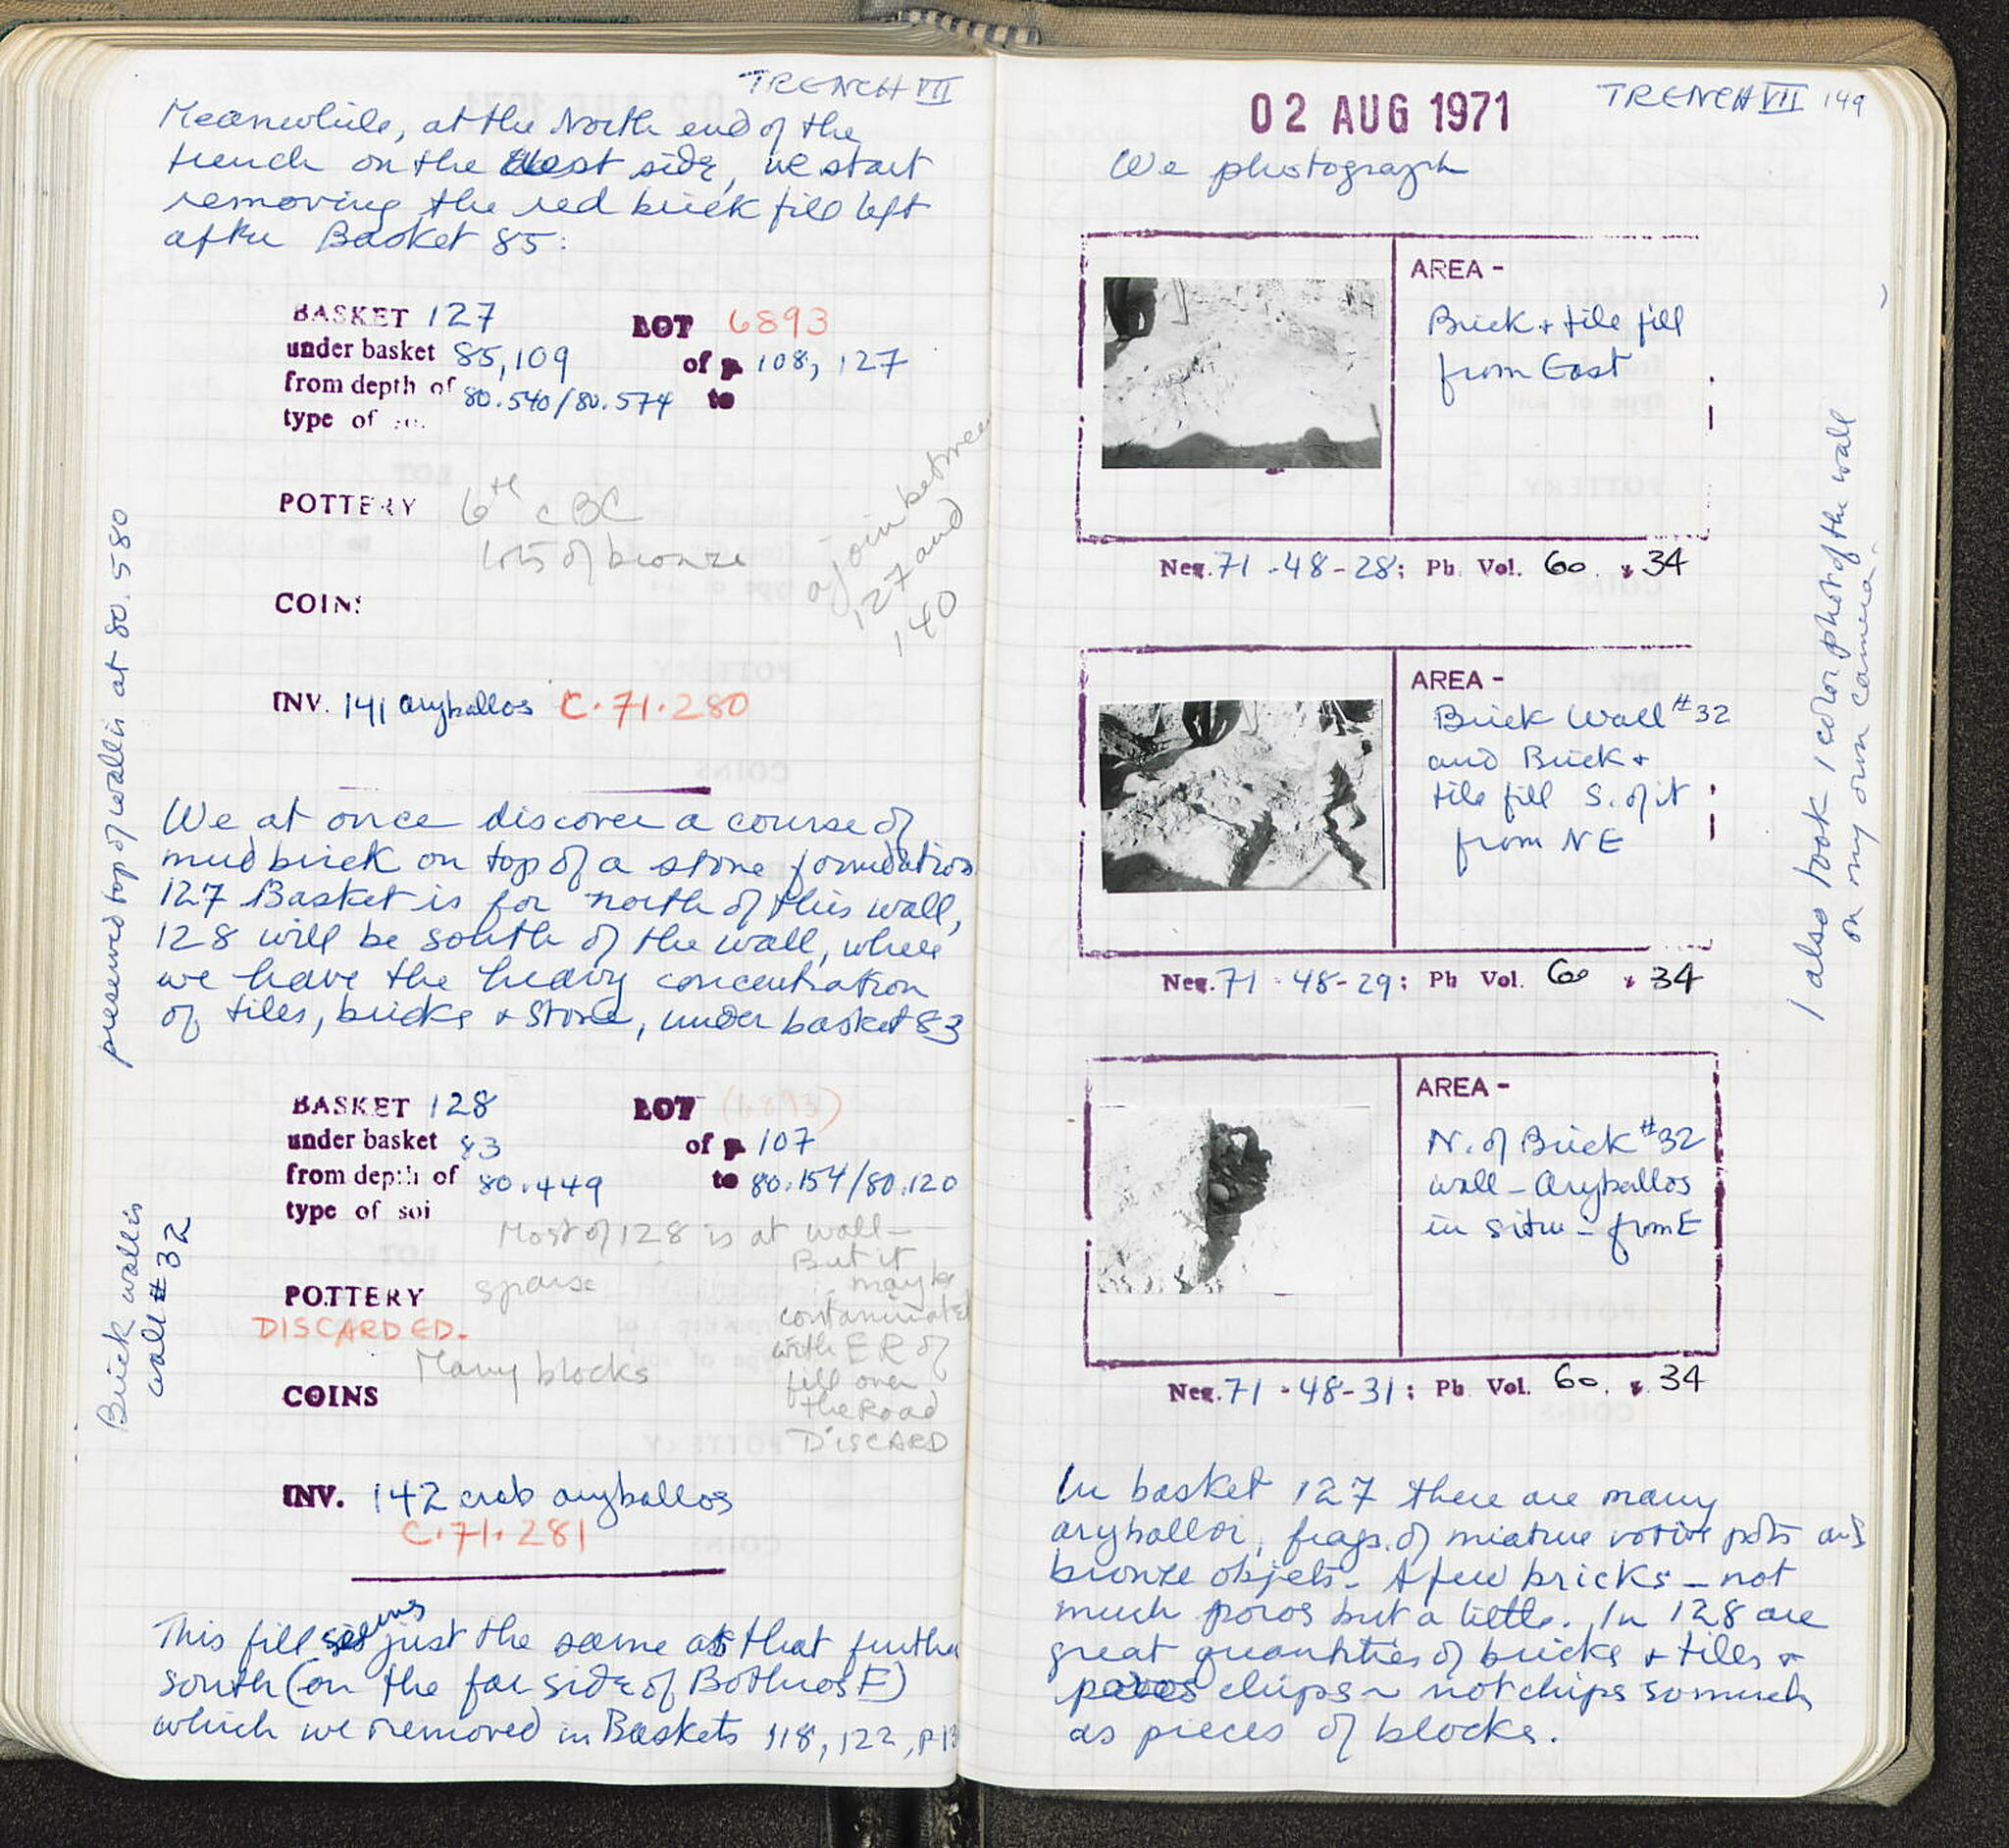 TRENCH VII
Meanwhile, at the North end of the
trench on the West side, we start
removing the red brick fill left
after Basket 85:
BASKET 127 LOT 6893
under basket 85, 109 of p. 108, 127
from depth of 80.540/80.574 to
type of
POTTERY 6th c BC
lots of bronze
a join between
127 and
140
COIN
INV. 141 aryballos C.71.280
preserved top of wall is at 80.580
We at once discover a course of
mudbrick on top of a stone foundation
127 Basket is for north of this wall,
128 will be south of the wall, where
we have the heavy concentration
of tiles, bricks & stone, under basket 83
BASKET 128 LOT (6893)
under basket 83 of p. 107
from depth of 80.449 to 80.154/80.120
type of soi
Most of 128 is at wall—
But it
may be
contaminated
with ER of
fill over
the Road
DISCARD
POTTERY sparse
DISCARDED.
Many blocks
COINS
INV. 142 crab aryballos
C.71.281
Brick wall is
wall #32
This fill seems just the same as that further
south (on the far side of Bothros F)
which we removed in Baskets 118, 122, p 13
02 AUG 1971
TRENCH VII 149
We photograph
AREA -
Brick + tile fill
from East
Neg. 71-48-28; Ph. Vol. 60. p 34
AREA -
Brick Wall #32
and Brick +
tile fill S. of it
from NE
Neg. 71-48-29; Ph Vol. 60 p 34
AREA -
N. of Brick #32
wall - Aryballos
in situ - from E
Neg. 71-48-31; Ph Vol. 60. p. 34
I also took 1 color phot of the wall
on my own camera.
In basket 127 there are many
aryballoi, frags. of miature votive pots and
bronze objets. A few bricks - not
much poros but a little. In 128 are
great quantities of bricks & tiles &
poros chips ~ not chips so much
as pieces of blocks.